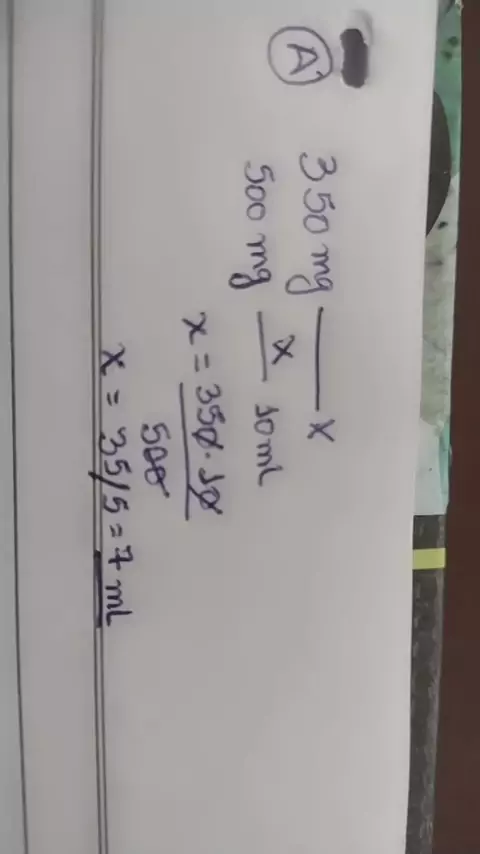 A
350 mg — x
500 mg — x — 10 ml
x = 350 . 10
500
x = 35/5 = 7 ml